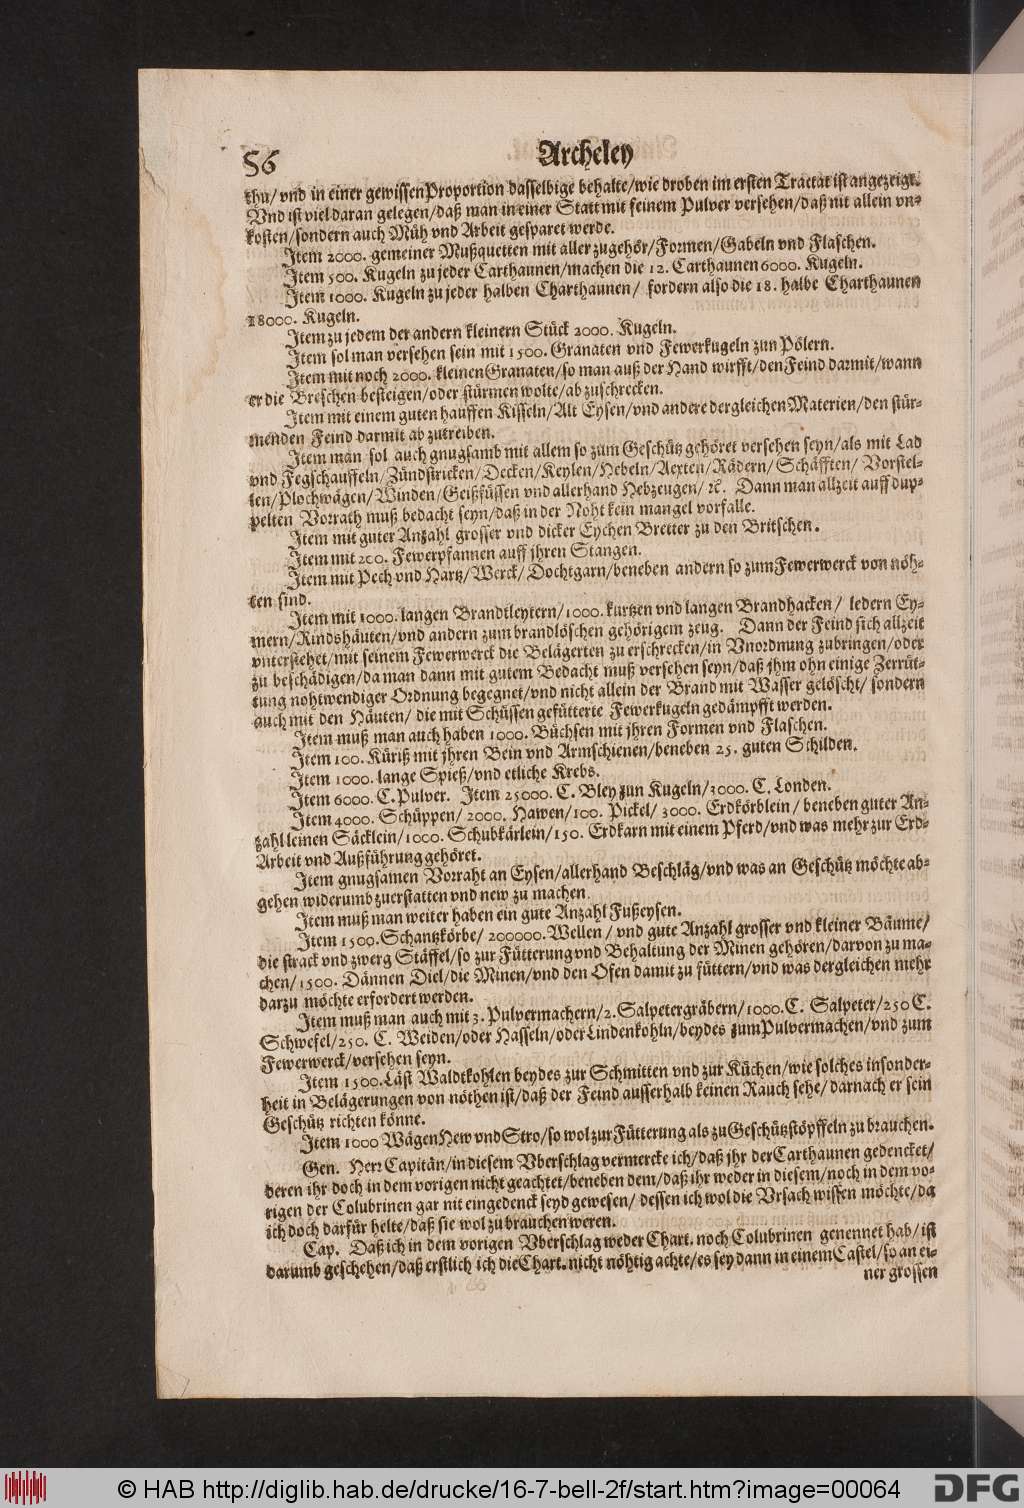 56 Archeley
thu/ vnd in einer gewissen Proportion dasselbige behalte/wie droben im ersten Tractat ist angezeigt.
Vnd ist viel daran gelegen/daß man in einer Statt mit feinem Pulver versehen/daß nit allein vn-
kosten/sondern auch Müh vnd Arbeit gesparet werde.
Item 2000. gemeiner Mußquetten mit aller zugehör/Formen/Gabeln vnd Flaschen.
Item 500. Kugeln zu jeder Carthaunen/machen die 12. Carthaunen 6000. Kugeln.
Item 1000. Kugeln zu jeder halben Charthaunen/ fordern also die 18. halbe Charthaunen
18000. Kugeln.
Item zu jedem der andern kleinern Stück 2000. Kugeln.
Item sol man versehen sein mit 1500. Granaten vnd Fewerkugeln zun Pölern.
Item mit noch 2000. kleinen Granaten/so man auß der Hand wirfft/den Feind darmit/wann
er die Breschen besteigen/oder stürmen wolte/ab zuschrecken.
Item mit einem guten hauffen Kisseln/Alt Eysen/vnd andere dergleichen Materien/den stür-
menden Feind darmit ab zutreiben.
Item man sol auch gnugsamb mit allem so zum Geschütz gehöret versehen seyn/als mit Lad
vnd Fegschauffeln/Zündstricken/Decken/Keylen/Hebeln/Aexten/Rädern/Schäfften/ Vorstel-
len/Plochwägen/Winden/Geißfüssen vnd allerhand Hebzeugen/ ꝛc. Dann man allzeit auff dup-
pelten Vorrath muß bedacht seyn/daß in der Noht kein mangel vorfalle.
Item mit guter Anzahl grosser vnd dicker Eychen Bretter zu den Britschen.
Item mit 200. Fewerpfannen auff jhren Stangen.
Item mit Pech vnd Hartz/Werck/Dochtgarn/beneben andern so zum Fewerwerck von nöh-
ten sind.
Item mit 1000. langen Brandtleytern/1000. kurtzen vnd langen Brandhacken/ ledern Ey-
mern/Rindshäuten/vnd andern zum brandlöschen gehörigem zeug. Dann der Feind sich allzeit
vnterstehet/mit seinem Fewerwerck die Belägerten zu erschrecken/in Vnordnung zubringen/oder
zu beschädigen/da man dann mit gutem Bedacht muß versehen seyn/daß jhm ohn einige Zerrüt-
tung nohtwendiger Ordnung begegnet/vnd nicht allein der Brand mit Wasser gelöscht/ sondern
auch mit den Häuten/ die mit Schüssen gefütterte Fewerkugeln gedämpfft werden.
Item muß man auch haben 1000. Büchsen mit jhren Formen vnd Flaschen.
Item 100. Küriß mit jhren Bein vnd Armschienen/beneben 25. guten Schilden.
Item 1000. lange Spieß/vnd etliche Krebs.
Item 6000. C. Pulver. Item 25000. C. Bley zun Kugeln/3000. C. Londen.
Item 4000. Schüppen/ 2000. Hawen/100. Pickel/ 3000. Erdkörblein/ beneben guter An-
zahl leinen Säcklein/1000. Schubkärlein/150. Erdkarn mit einem Pferd/vnd was mehr zur Erd-
Arbeit vnd Außführung gehöret.
Item gnugsamen Vorraht an Eysen/allerhand Beschläg/vnd was an Geschütz möchte ab-
gehen widerumb zuerstatten vnd new zu machen.
Item muß man weiter haben ein gute Anzahl Fußeysen.
Item 1500. Schantzkörbe/ 200000. Wellen/ vnd gute Anzahl grosser vnd kleiner Bäume/
die strack vnd zwerg Stäffel/so zur Fütterung vnd Behaltung der Minen gehören/darvon zu ma-
chen/1500. Dännen Diel/die Minen/vnd den Ofen damit zu füttern/vnd was dergleichen mehr
darzu möchte erfordert werden.
Item muß man auch mit 3. Pulvermachern/2. Salpetergräbern/1000. C. Salpeter/250 C.
Schwefel/250. C. Weiden/oder Hasseln/oder Lindenkohln/beydes zum Pulvermachen/vnd zum
Fewerwerck/versehen seyn.
Item 1500. Läst Waldtkohlen beydes zur Schmitten vnd zur Küchen/wie solches insonder-
heit in Belägerungen von nöthen ist/daß der Feind ausserhalb keinen Rauch sehe/ darnach er sein
Geschütz richten könne.
Item 1000 Wägen Hew vnd Stro/so wol zur Fütterung als zu Geschützstöpffeln zu brauchen.
Gen. Herr Capitän/in diesem Vberschlag vermercke ich/daß jhr der Carthaunen gedencket/
deren ihr doch in dem vorigen nicht geachtet/beneben dem/daß ihr weder in diesem/noch in dem vo-
rigen der Colubrinen gar nit eingedenck seyd gewesen/ dessen ich wol die Vrsach wissen möchte/da
ich doch darfür helte/daß sie wol zu brauchen weren.
Cap. Daß ich in dem vorigen Vberschlag weder Chart. noch Colubrinen genennet hab/ ist
darumb geschehen/daß erstlich ich die Chart. nicht nöhtig achte/es sey dann in einem Castel/so an ei-
ner grossen
© HAB http://diglib.hab.de/drucke/16-7-bell-2f/start.htm?image=00064
DFG